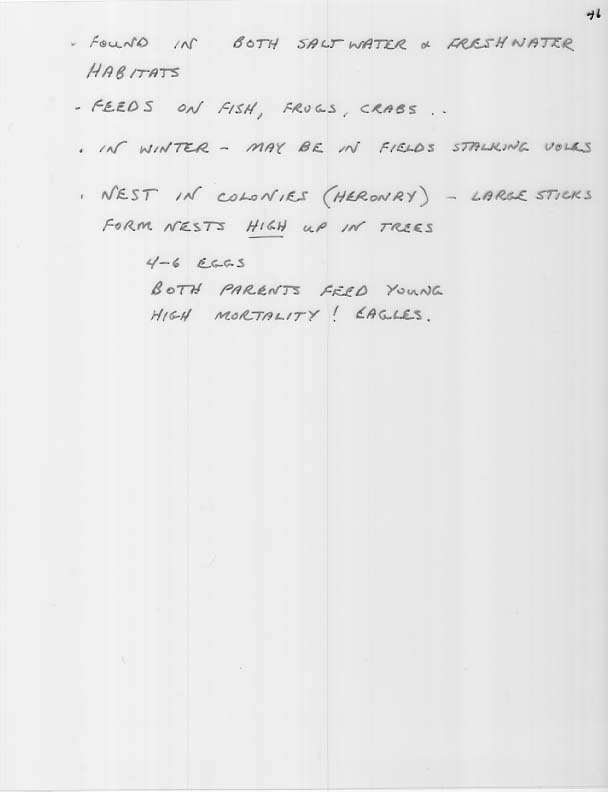 46
- FOUND IN BOTH SALTWATER & FRESHWATER
HABITATS
- FEEDS ON FISH, FROGS, CRABS ..
. IN WINTER - MAY BE IN FIELDS STALKING VOLES
. NEST IN COLONIES (HERONRY) - LARGE STICKS
FORM NESTS HIGH UP IN TREES
4-6 EGGS
BOTH PARENTS FEED YOUNG
HIGH MORTALITY! EAGLES.